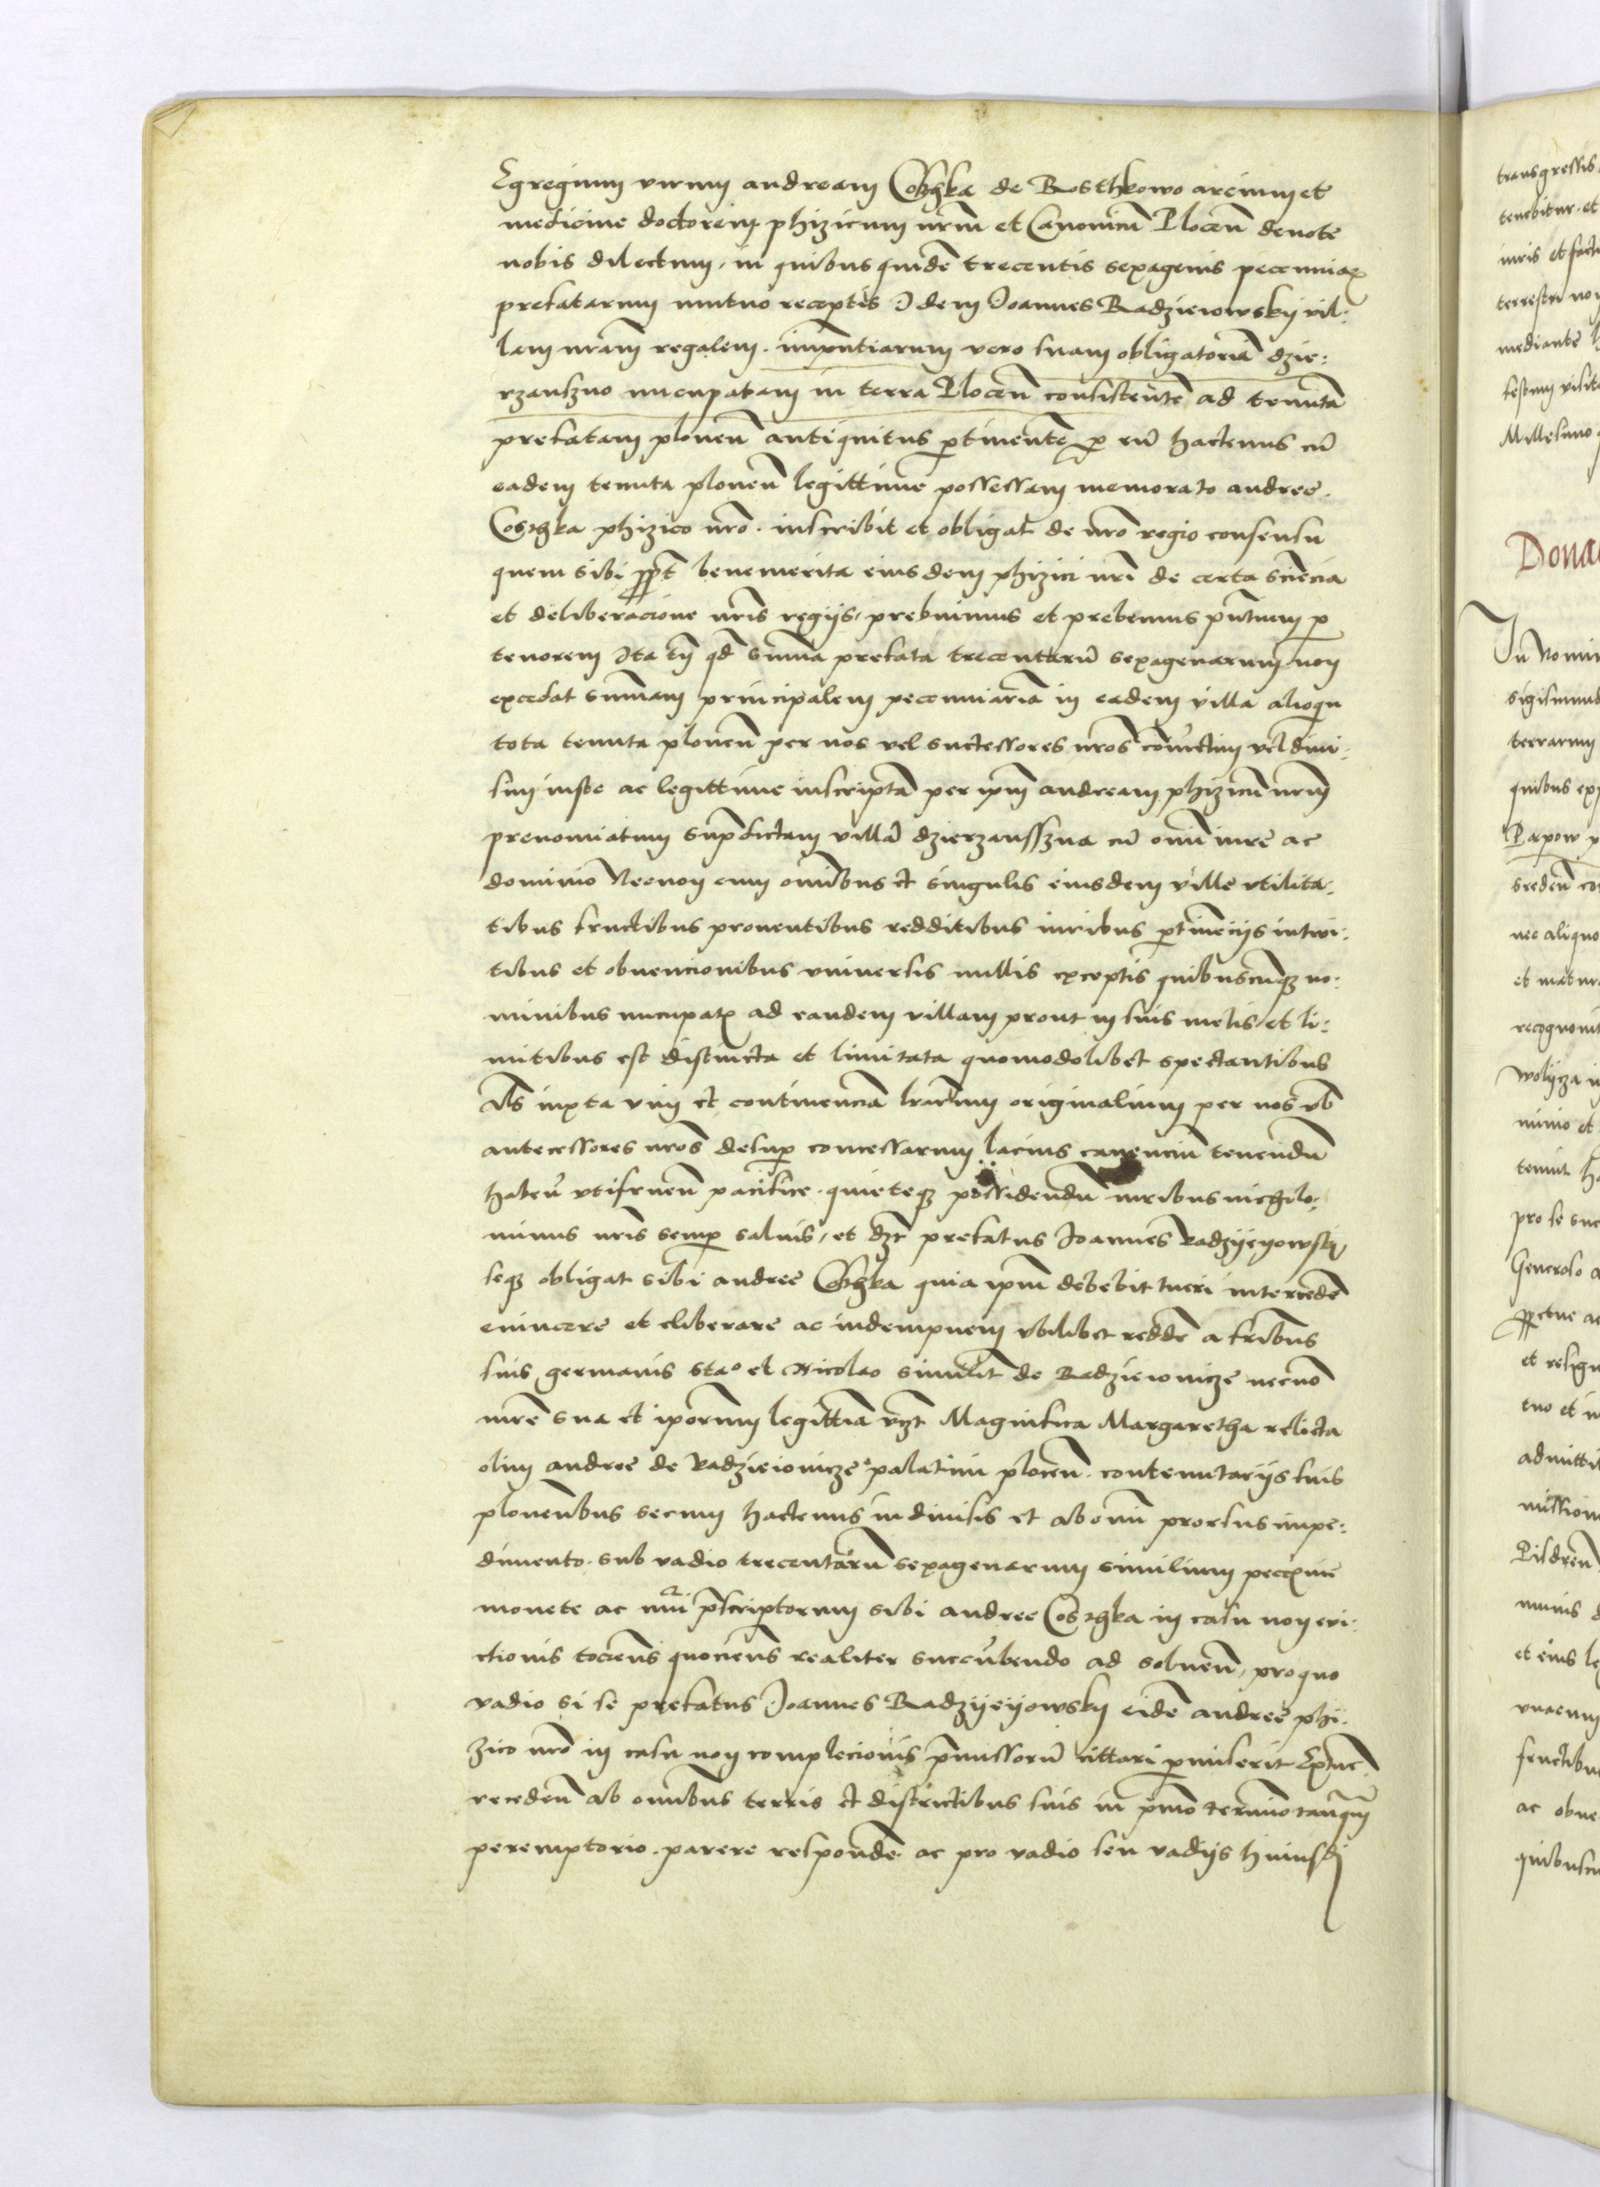 Egregium virum andream Coszka de Rosthkowo arcium et
medicine doctorem phizicum nrm̄ et Canonicū Plocen̄ devote
nobis dilectum, in quibus quidē trecentis sexagenis pecuniar̄
prefatarum mutuo receptis Idem Joannes Radzieiowskij vil-
lam nr̄am regalem. impn̄tiarum vero suam obligatoriā dzie-
rzanszno nuncupatam in terra Plocen̄ consistentē ad tenutā
prefatam plonen̄ antiquitus ptinentē p eū hactenus cū
eadem tenuta plonen̄ legittime possessam memorato andree
Coszka phizico nrō. inscribit et obligat de nrō regio consensu
quem sibi ppt̄ benemerita eiusdem phizici nri de certa sciencia
et deliberacione nris regijs, prebuimus et prebemus pn̄tium p
tenorem Ita tn̄ qd̄ summa prefata trecentarū sexagenarum non
excedat summam principalem pecuniariā in eadem villa alioquin
tota tenuta plonen̄ per nos vel successores nros coniūctim vel divi-
sim iuste ac legittime inscriptā per ipm̄ andream phizicū nrm̄
prenominatum supdictam villā dzierzanszna cū omī iure ac
dominio Necnon cum omībus et singulis eiusdem ville vtilita-
tibus fructibus proventibus redditibus iuribus ptinēcijs introi-
tibus et obvencionibus vniversis nullis exceptis quibuscunqz no-
minibus nuncupatr̄ ad eandem villam prout in suis metis et li-
mitibus est distincta et limitata quomodolibet spectantibus
Als iuxta vim et continenciā lrarum originalium per nos vl
antecessores nros desup concessarum lacius canenciū tenendū
haben̄ vtifruen̄ pacifice. quieteqz possidendū iuribus nichilo-
minus nris semp salvis, et dzt prefatus Joannes Radzyeyowskij
seqz obligat sibi andree Coszka quia ipm̄ debebit tueri intercedē
evincere et eliberare ac indempnem vbilibet reddē a fribus
suis germanis Stao et Nicolao similit̄ de Radzieiowicze necnō
mr̄e sua et ipsorum legittia vzt Magnifica Margaretha relicta
olim andree de Radzieiowicze palatini plocen̄. contenutarijs suis
plonen̄bus secum hactenus indivisis et ab omī prorsus impe-
dimento. sub vadio trecentarū sexagenarum similium pecūie
monete ac nūi pscriptorum sibi andree Coszka in casu non evi-
ctionis tociens quociens realiter succūbendo ad solven̄, pro quo
vadio si se prefatus Joannes Radzyeyowskij eidē andree phi-
zico nrō in casu non complecionis pmissorū cittari pmiserit Extunc
receden̄ ab omībus terris et districtibus suis in pmo termino tanqm̄
peremptorio. parere respondē ac pro vadio seu vadijs huiusdi
transgressis
tenebitur. et
iuris et facti
terrestri non
mediante
festum visita
Millesimo
Dona
In nomin
sigismund
terrarum
quibus exp
nec aliquo
et matur
recognovit
minio et
tenuit
pro se suc
Generoso a
ppetue ac
et resign
admittit
mission
et eius le
vnacum
fructibus
ac obve
quibuscu